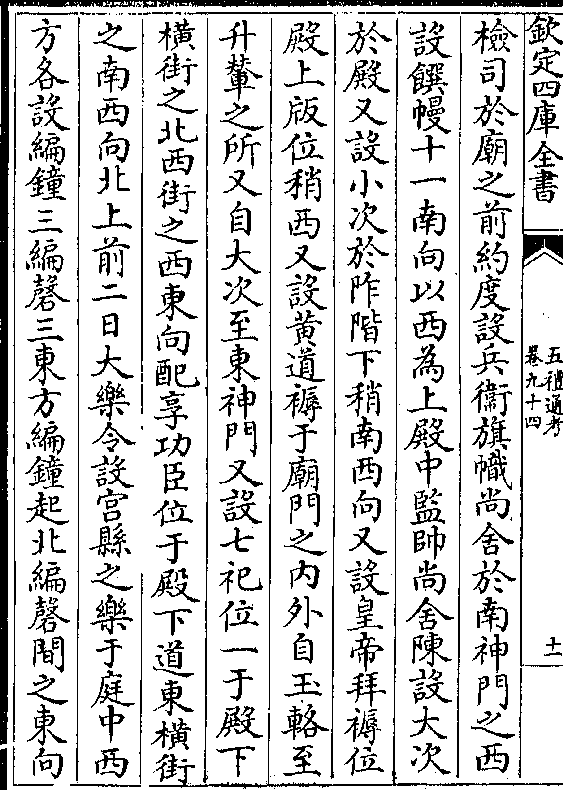 欽定四庫全書
五禮通考
卷九十四
十一
檢司於廟之前約度設兵衞旗幟尚舍於南神門之西
設饌幔十一南向以西為上殿中監帥尚舍陳設大次
於殿又設小次於阼階下稍南西向又設皇帝拜褥位
殿上版位稍西又設黄道褥于廟門之内外自玉輅至
升輦之所又自大次至東神門又設七祀位一于殿下
橫街之北西街之西東向配享功臣位于殿下道東橫街
之南西向北上前二日大樂令設宫縣之樂于庭中西
方各設編鐘三編磬三東方編鐘起北編磬間之東向